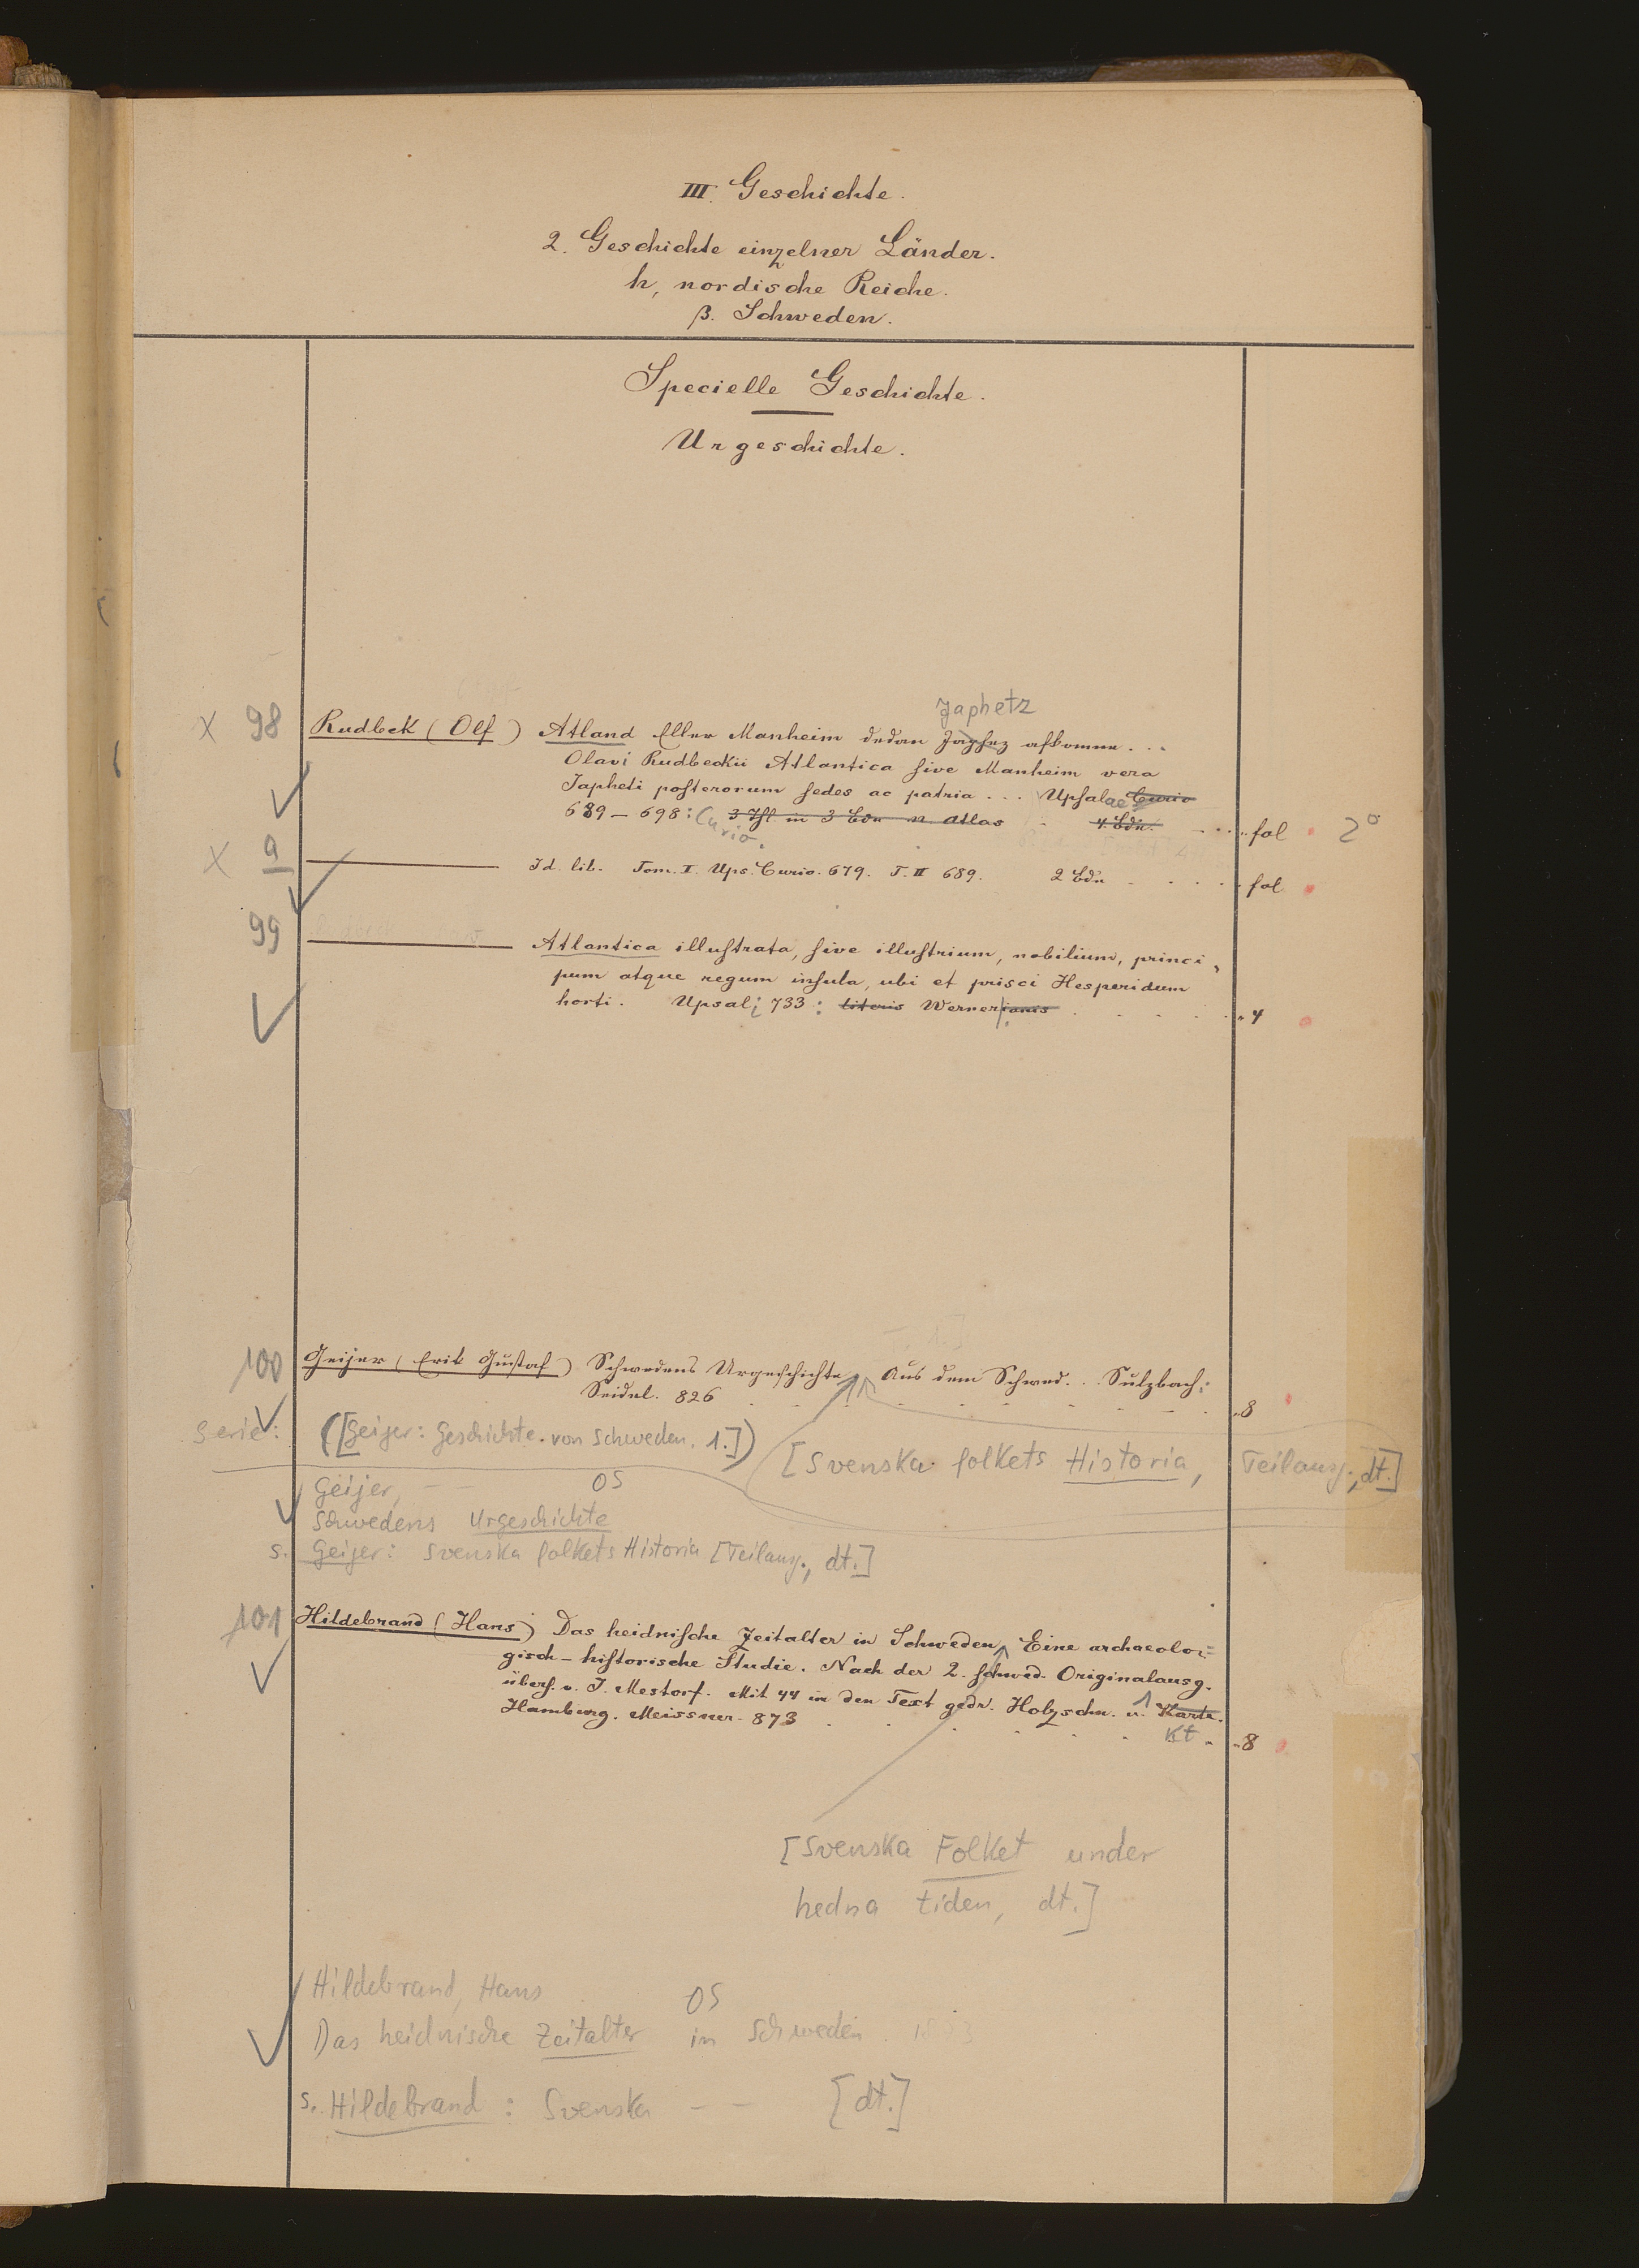 III. Geschichte.
2. Geschichte einzelner Länder.
h, nordische Reiche.
β. Schweden.
Specielle Geschichte.
Urgeschichte.
Japhetz
x 98 Rudbek (Olf) Atland Eller Manheim dedan Japhez afkomne...
Olavi Rudbeckii Atlantica sive Manheim vera
Japheti posterorum sedes ac patria... Upsalae Curio
689-698: Curio. 3 Thl. in 3 Bdn u. Atlas 4 Bdn. fol 2°
x a Id. lib. Tom. I. Ups. Curio. 679. T. II 689. 2 Bdn fol
99 Atlantica illustrata, sive illustrium, nobilium, princi,
pum atque regum insula, ubi et prisci Hesperidum
horti. Upsal; 733: literis Wernerianis 4
100 Geijer (Erik Gustaf) Schwedens Urgeschichte. Aus dem Schwed... Sulzbach:
Seidel. 826 8
Serie: ([Geijer: Geschichte von Schweden. 1.])
[Svenska folkets Historia, Teilausg., dt.]
Geijer, -- OS
Schwedens Urgeschichte
s. Geijer: Svenska folkets Historia [Teilausg., dt.]
101 Hildebrand (Hans) Das heidnische Zeitalter in Schweden. Eine archaeolo=
gisch-historische Studie. Nach der 2. schwed. Originalausg.
übers. v. J. Mestorf. Mit 44 in den Text gedr. Holzschn. u. 1 Karte.
Hamburg. Meissner. 873 Kt. 8
[Svenska Folket under
hedna tiden, dt.]
Hildebrand, Hans OS
Das heidnische Zeitalter in Schweden.
s. Hildebrand: Svenska -- [dt.]